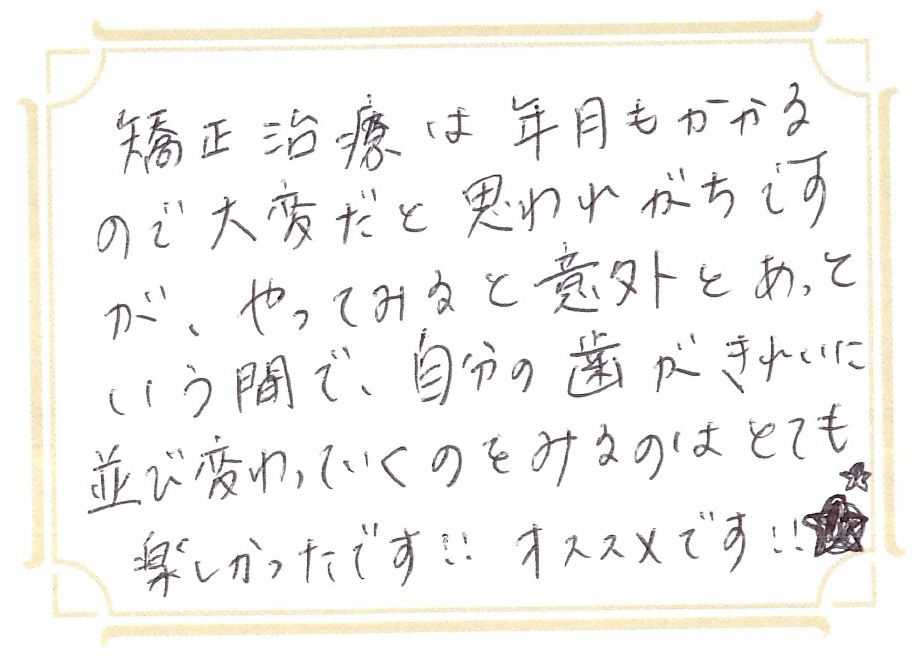 矯正治療は年月もかかる
ので大変だと思われがちです
が、やってみると意外とあっと
いう間で、自分の歯がきれいに
並び変わっていくのをみるのはとても
楽しかったです!! オススメです!!